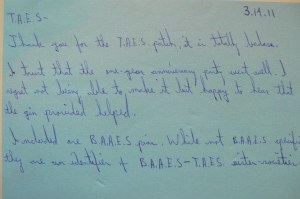 T.A.E.S- 3.14.11
Thank you for the T.A.E.S. patch, it is totally badass.
I trust that the one-year anniversary party went well. I
regret not being able to make it but happy to hear that
the gin provided helped.
I included are B.A.A.E.S. pins. While not B.A.A.E.S. specific
they are an identifier of B.A.A.E.S-T.A.E.S. sister-societies